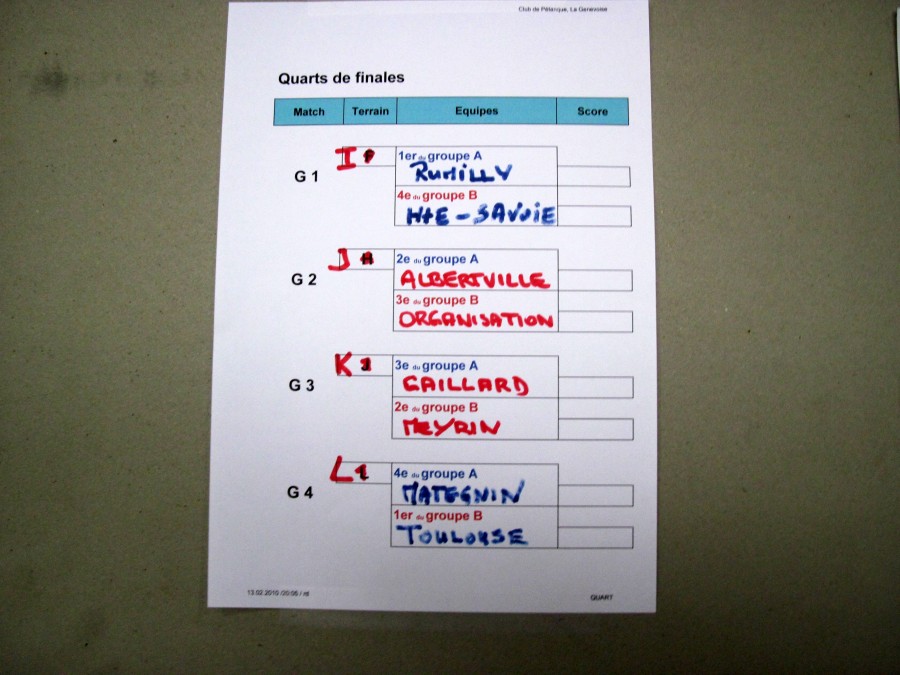 Club de Pétanque, La Genevoise
Quarts de finales
Match Terrain Equipes Score
G 1 I 1er du groupe A
RUMILLY
4e du groupe B
HTE-SAVOIE
G 2 J 2e du groupe A
ALBERTVILLE
3e du groupe B
ORGANISATION
G 3 K 3e du groupe A
GAILLARD
2e du groupe B
MEYRIN
G 4 L 4e du groupe A
MATEGNIN
1er du groupe B
TOULOUSE
13.02.2010 /20:06 / nt QUART